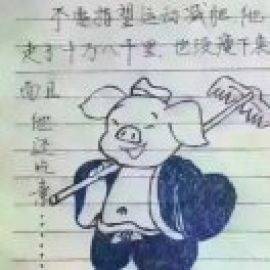 不要指望运动减肥 他
走了十万八千里.也没瘦下来
而且
他
还
吃
素
……